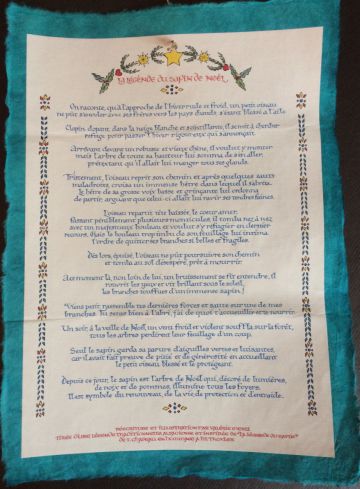 La légende du sapin de Noël
On raconte, qu'à l'approche de l'hiver rude et froid, un petit oiseau
ne put s'envoler avec ses frères vers les pays chauds, s'étant blessé à l'aile
Clopin clopant, dans la neige blanche et scintillante, il se mit à chercher
refuge pour passer l'hiver rigoureux qui s'annonçait.
Arrivant devant un robuste et vieux chêne, il voulut y monter
mais l'arbre de toute sa hauteur lui somma de s'en aller,
prétextant qu'il allait lui manger tous ses glands.
Tristement, l'oiseau reprit son chemin et après quelques sauts
maladroits, croisa un immense hêtre dans lequel il s'abrita.
Le hêtre de sa grosse voix basse et grinçante lui ordonna
de partir, arguant que celui-ci allait lui ravir ses tendres faines.
L'oiseau repartit tête baissée, le cœur amer.
Hissant péniblement plusieurs monticules, il tomba nez à nez
avec un majestueux bouleau et voulut s'y réfugier en dernier
recours. Mais le bouleau trop imbu de son feuillage lui intima
l'ordre de quitter ses branches si belles et fragiles.
Dès lors, épuisé, l'oiseau ne put poursuivre son chemin
et tomba au sol désespéré, prêt à mourir.
A ce moment là, non loin de lui, un bruissement se fit entendre, il
rouvrit les yeux et vit brillant sous le soleil,
les branches touffues d'un immense sapin !
"Viens petit, rassemble tes dernières forces et saute sur une de mes
branches. Tu seras bien à l'abri, j'ai de quoi t'accueillir et te nourrir.
Un soir à la veille de Noël, un vent froid et violent souffla sur la forêt,
tous les arbres perdirent leur feuillage d'un coup.
Seul le sapin garda sa parure d'aiguilles vertes et luisantes,
car il avait fait preuve de pitié et de générosité en accueillant
le petit oiseau blessé et le protégeant.
Depuis ce jour, le sapin est l'arbre de Noël qui, décoré de lumières,
de noix et de pommes, illumine tous les foyers.
Il est symbole du renouveau, de la vie, de protection et d'entraide.
Réécriture et illustration par Valérie
tirée d'une légende traditionnelle alsacienne et inspirée de "La légende du sapin"